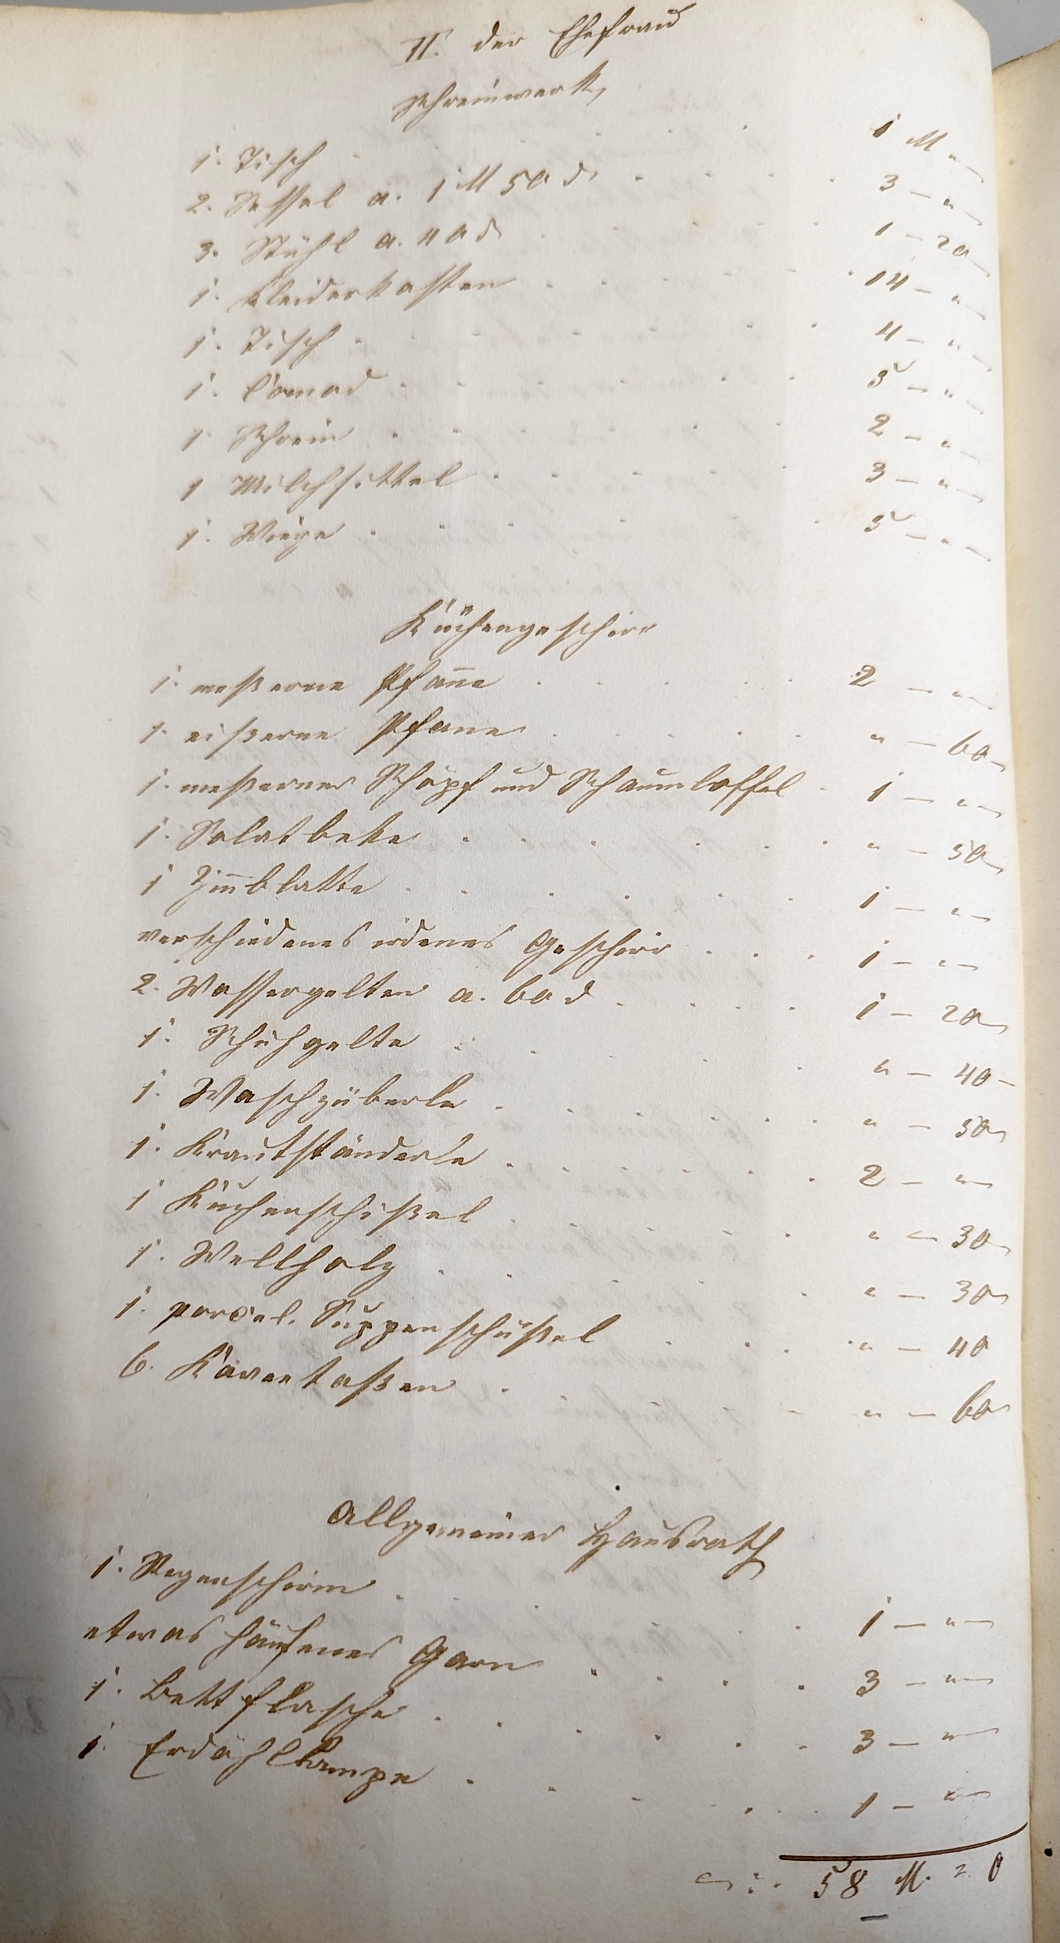 II. der Ehefrau
Schreinwerk,
1. Tisch . . . 1 M "
2. Sessel a. 1 M 50 d. . . . 3 — "
3. Stühl a. 40 d . . . 1 — 20
1. Kleiderkasten . . . 14 — "
1. Tisch . . . 4 — "
1. Comod . . . 5 — "
1 Schrein . . . 2 — "
1 Milchsittel . . . 3 — "
1. Wiege . . . 5 — "
Küchengeschirr
1. meßerne Pfan̅e . . . 2 — "
1. eißerne Pfane . . . " — 60
1. meßerner Schöpf und Schaumloffel . 1 — "
1. Salatbeke . . . " — 50
1 Zin̅blatte . . . 1 — "
verschiedenes irdenes Geschirr . . . 1 — "
2. Wassergelten a. 60 d . . . 1 — 20
1. Schühgelte . . . " — 40 —
1. Waschzüberle . . . " — 50
1. Krautständerle . . . 2 — "
1 Kuchenschißel . . . " — 30
1. Wellholz . . . " — 30
1. porcel. Suppenschüßel . . . " — 40
6. Kaveetaßen . . . " — 60
Allgemeiner Hausrath
1. Regenschirm . . . 1 — "
etwas häufenes Garn . . . 3 — "
1. Bettflasche . . . 3 — "
1. Erdöhllampe . . . 1 — "
58 M. 20